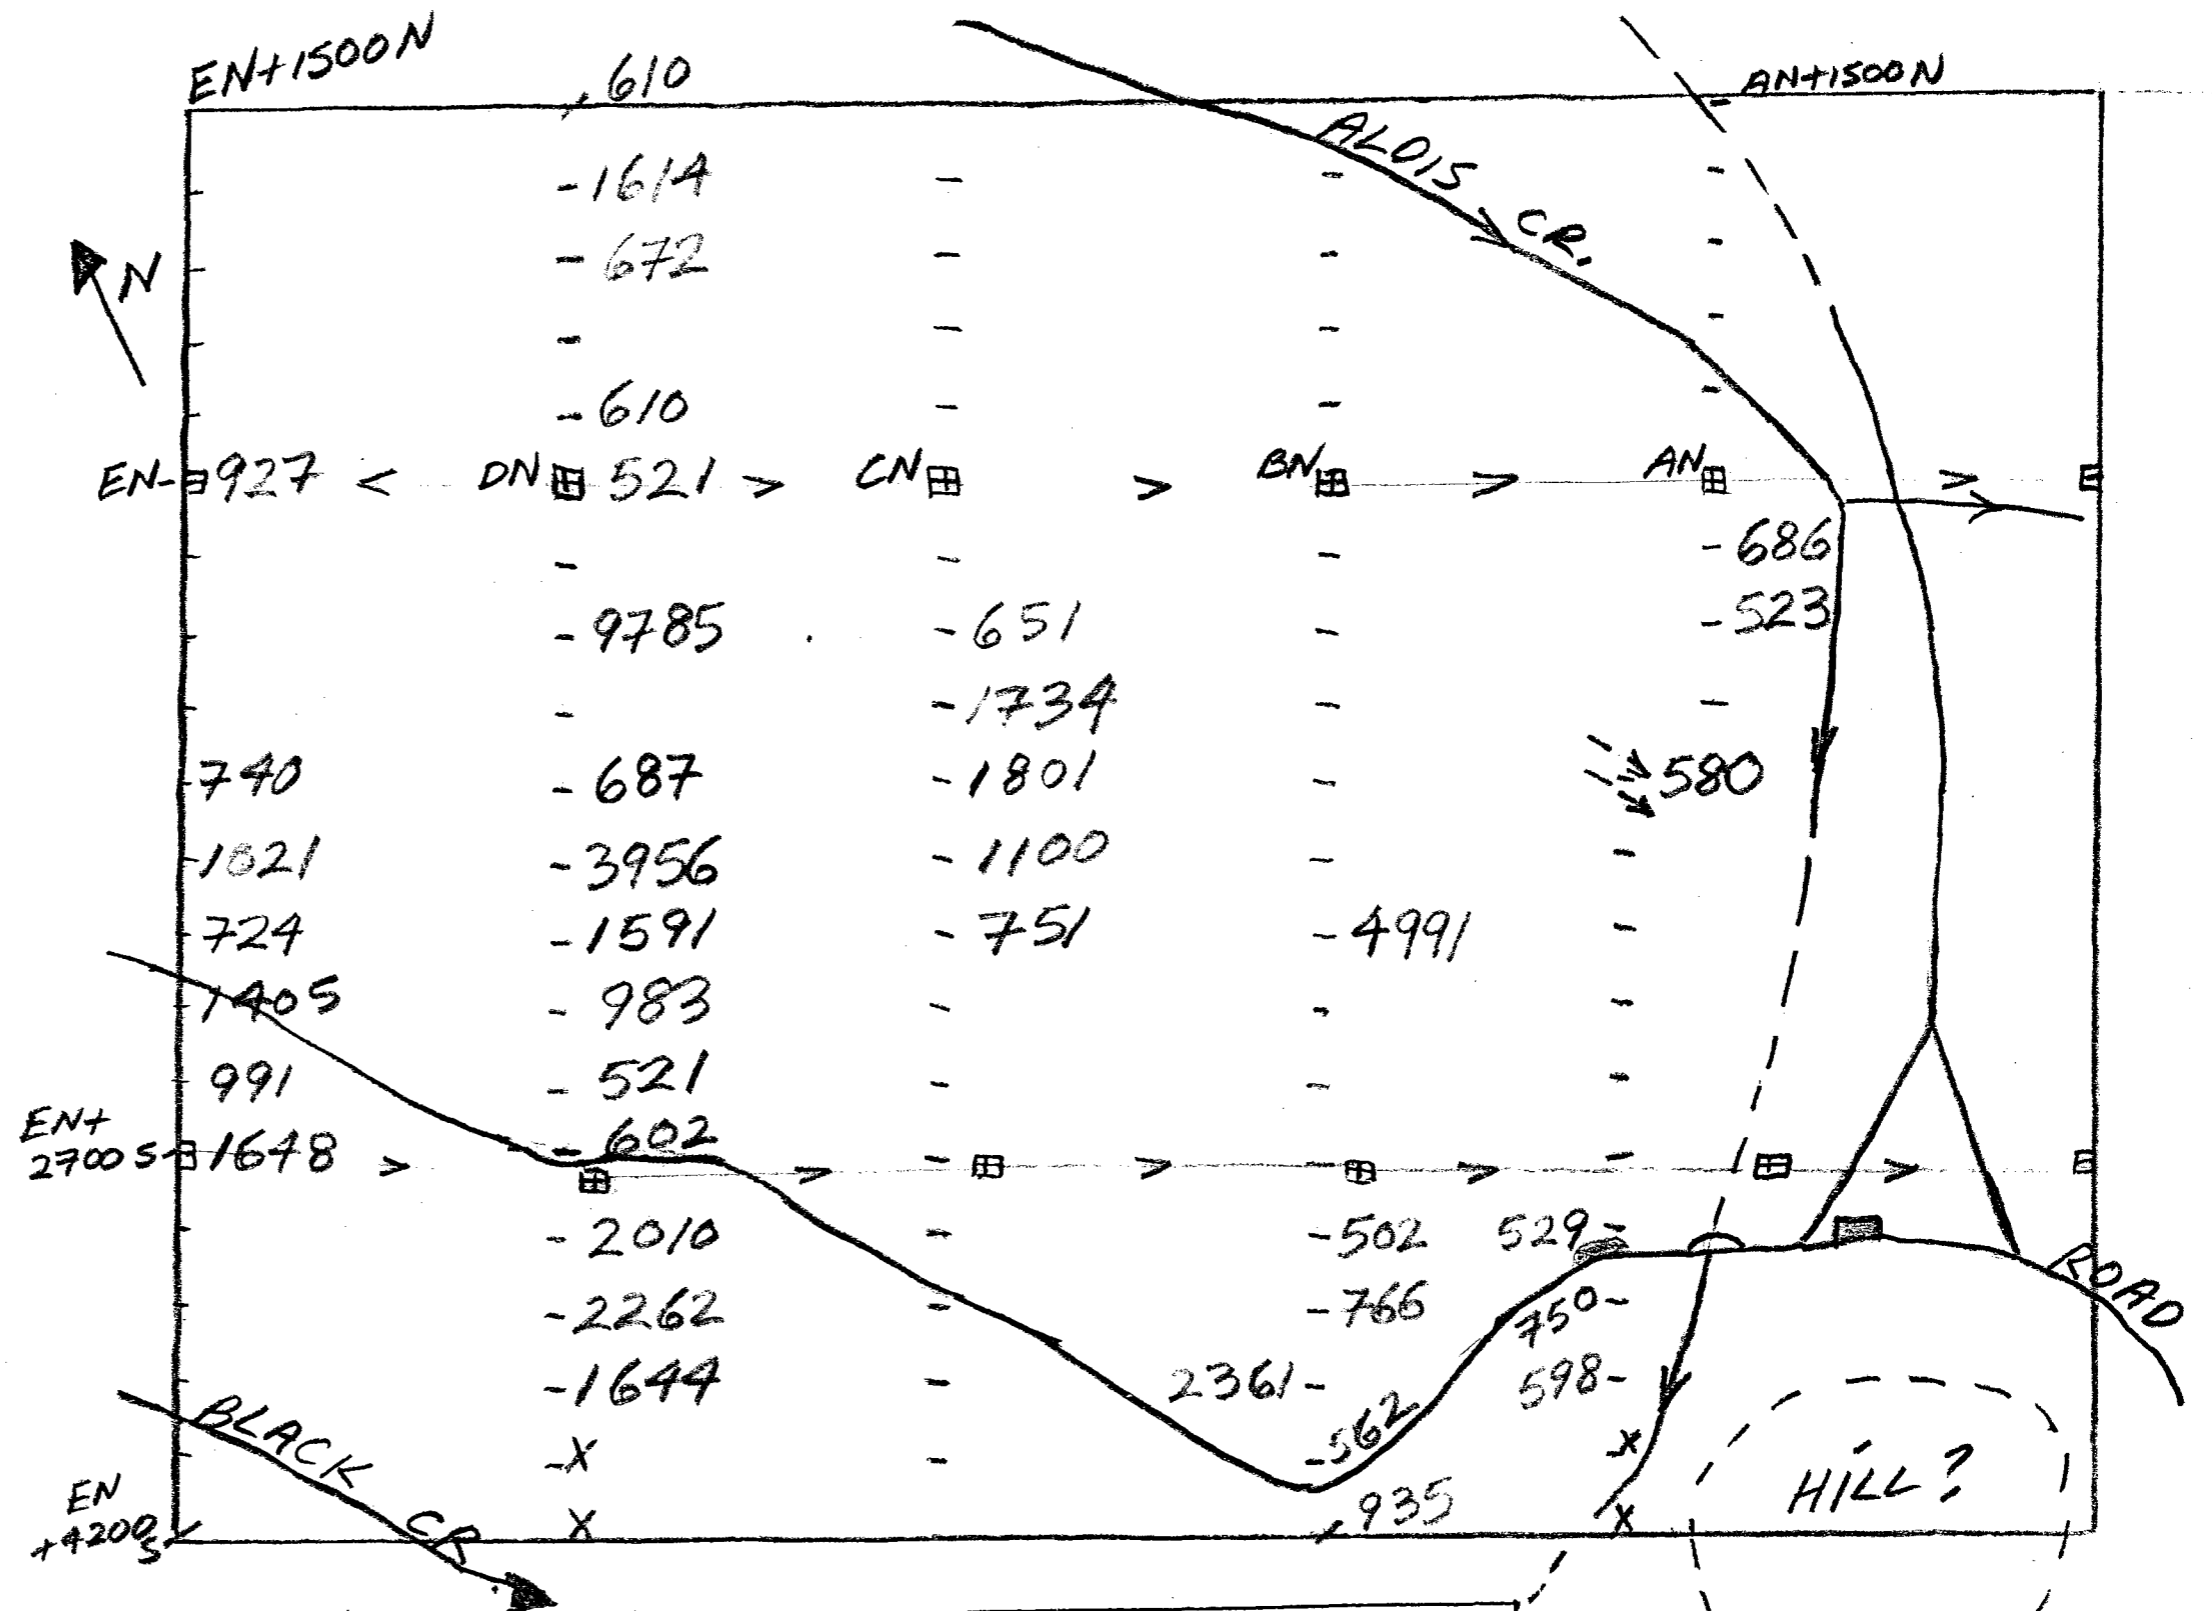 EN+1500N
610
AN+1500N
ALOIS CR.
-1614
-672
N
-610
EN- 927 < DN 521 > CN > BN > AN >
-686
-523
-9785 -651
-1734
740 -687 -1801 580
-1021 -3956 -1100
724 -1591 -751 -4991
1405 -983
991 -521
EN+ 2700 S 1648 > 602 > > > >
-2010 -502 529-
ROAD
-2262 -766 750-
-1644 2361- 598-
BLACK CR
-X 562 X
HILL?
EN +4200 S X 935 X